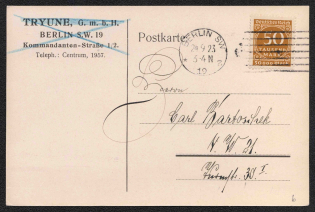 TRYUNE, G. m. b. H.
BERLIN SW. 19
Kommandanten-Straße 1/2.
Teleph.: Centrum, 1957.
Postkarte
BERLIN SW
24.9.23
3-4 N
19
50
TAUSEND
MARK
Herrn
Carl Bartoschek
N W 21.